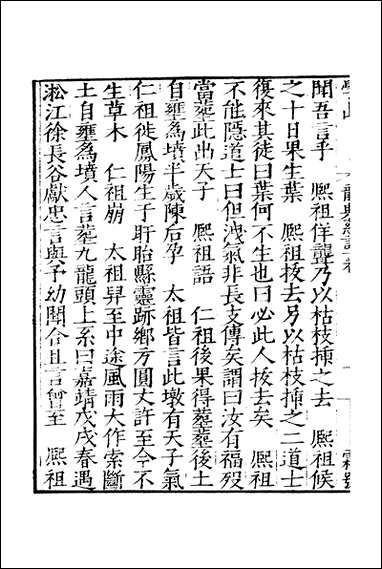 聞吾言乎　熙祖佯聾乃以枯枝揷之去　熙祖候
之十日果生葉　熙祖拔去另以枯枝揷之二道士
復來其徒曰葉何不生也曰必此人拔去矣　熙祖
不能隱道士曰但洩氣非長支傳矣謂曰汝有福歿
當塟此出天子　熙祖語　仁祖後果得塟塟後土
自壅爲墳半歲陳后孕　太祖皆言此墩有天子氣
仁祖徙鳳陽生子盱眙縣靈跡鄉方圓丈許至今不
生草木　仁祖崩　太祖舁至中途風雨大作索斷
土自壅爲墳人言塟九龍頭上系曰嘉靖戊戌春遇
淞江徐長谷獻忠言與予幼聞合且言曾至　熙祖